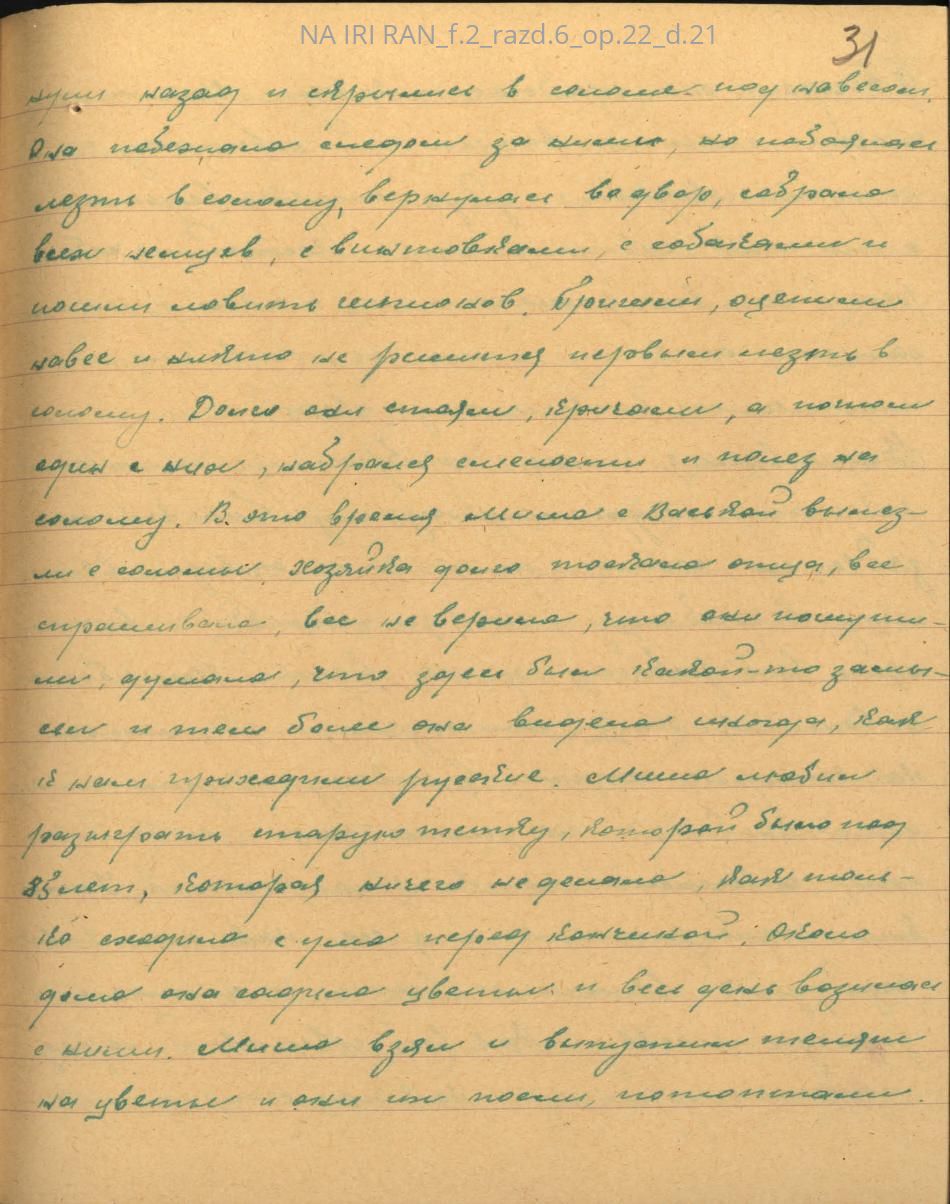 NA IRI RAN_f.2_razd.6_op.22_d.21
31
нули назад и скрылись в соломе под навесом.
Она побежала следом за ними, но побоялась
лезть в солому, вернулась во двор, собрала
всех немцев, с винтовками, с собаками и
пошли ловить шпионов. Пришли, оцепили
навес и никто не решится первым лезть в
солому. Долго они стояли, кричали, а потом
один с них, набрался смелости и полез на
солому. В это время Миша с Васькой вылез-
ли с соломы. Хозяйка долго тоскала отца, все
спрашивала, все не верила, что они пошути-
ли, думала, что здесь был какой-то замы-
сел и тем более она видела иногда, как
к нам приходили русские. Миша любил
разыграть старую тетку, которой было под
85 лет, которая ничего не делала, как толь-
ко сходила с ума перед кончиной. Около
дома она садила цветы и весь день возилась
с ними. Миша взял и выпустил телят
на цветы и они их поели, потоптали.